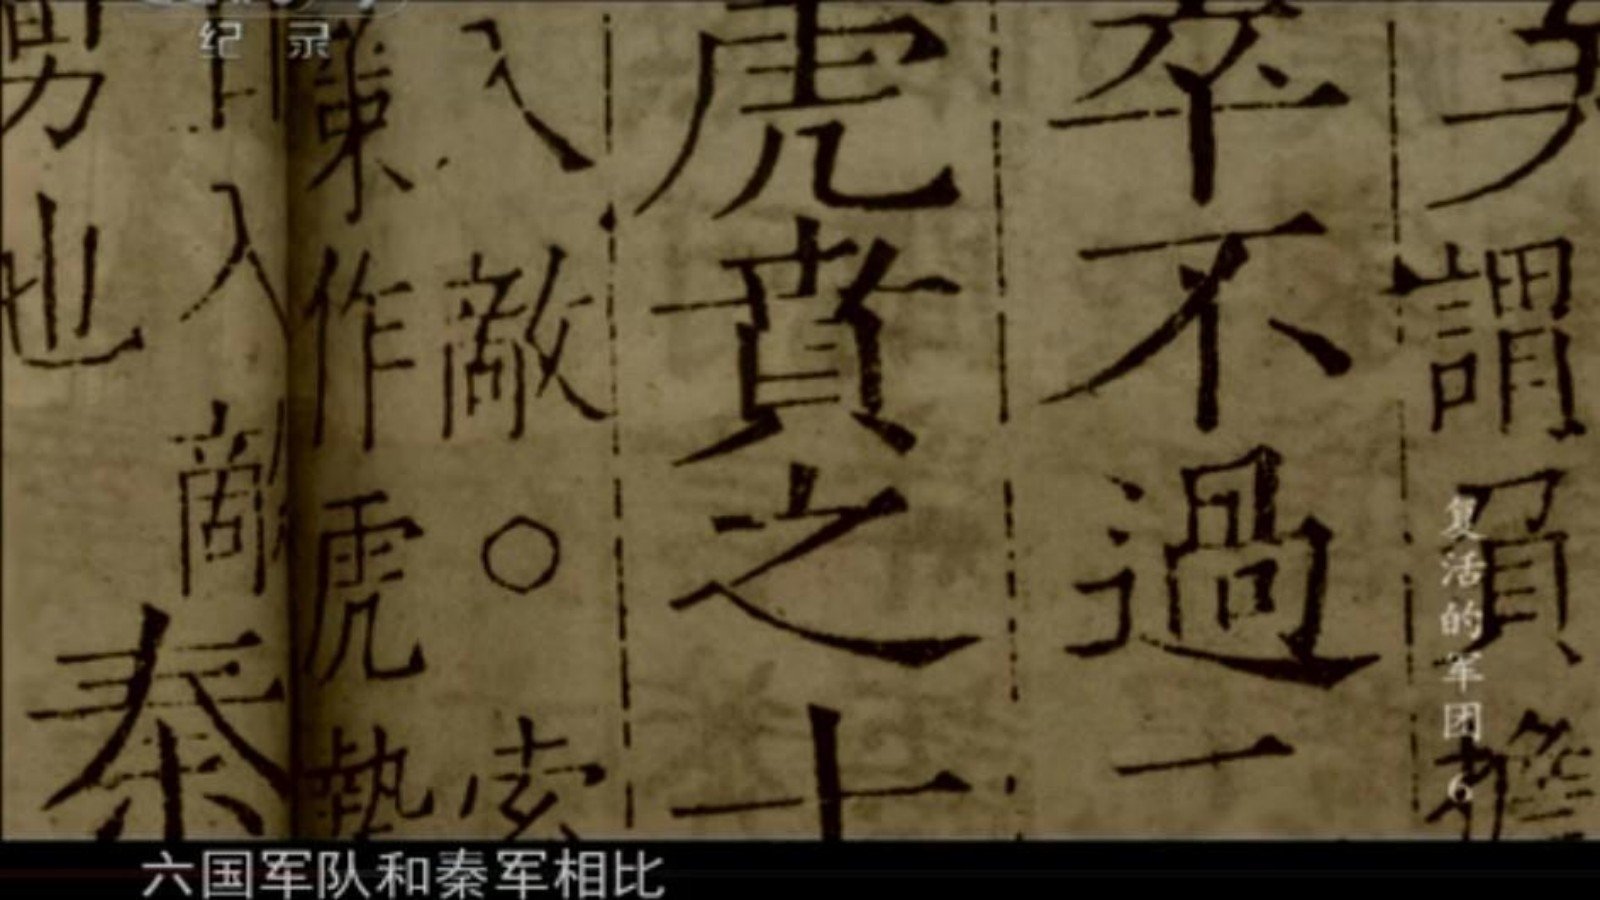 纪录
謂負
卒不過一
虎賁之士
入敵○索
策作虎勢
入敵
秦
男也
复活的军团 6
六国军队和秦军相比